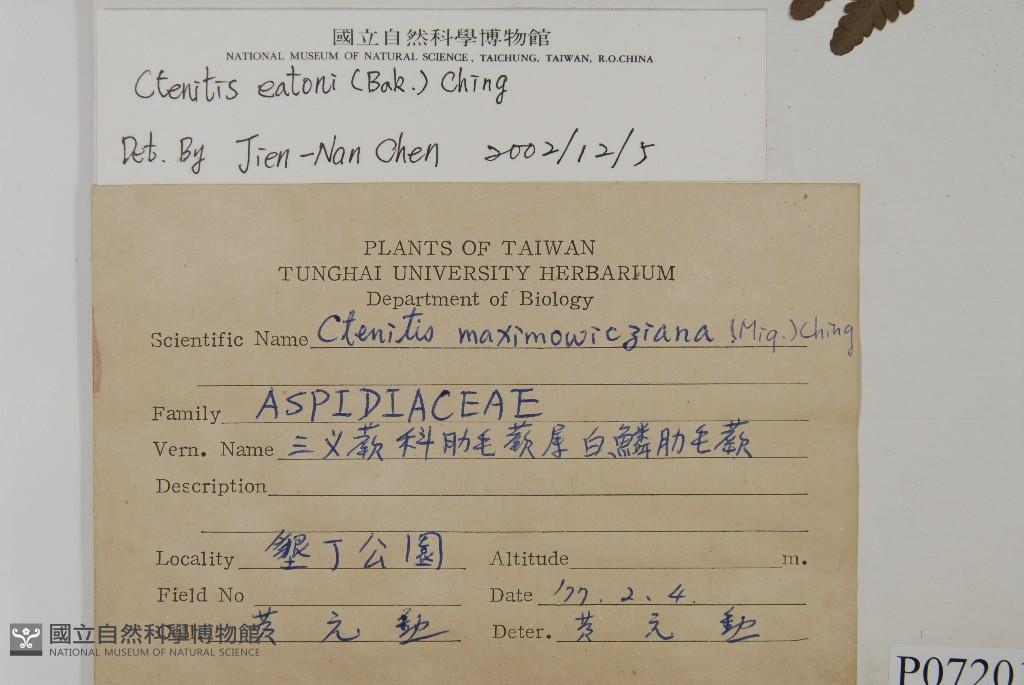 國立自然科學博物館
NATIONAL MUSEUM OF NATURAL SCIENCE, TAICHUNG, TAIWAN, R.O.CHINA
Ctenitis eatoni (Bak.) Ching
Det. By Jien-Nan Chen 2002/12/5
PLANTS OF TAIWAN
TUNGHAI UNIVERSITY HERBARIUM
Department of Biology
Scientific Name Ctenitis maximowicziana (Miq.) Ching
Family ASPIDIACEAE
Vern. Name 三义蕨科肋毛蕨屬白鱗肋毛蕨
Description
Locality 墾丁公園 Altitude m.
Field No Date '77. 2. 4.
黃元勳 Deter. 黃元勳
國立自然科學博物館
NATIONAL MUSEUM OF NATURAL SCIENCE
P0720